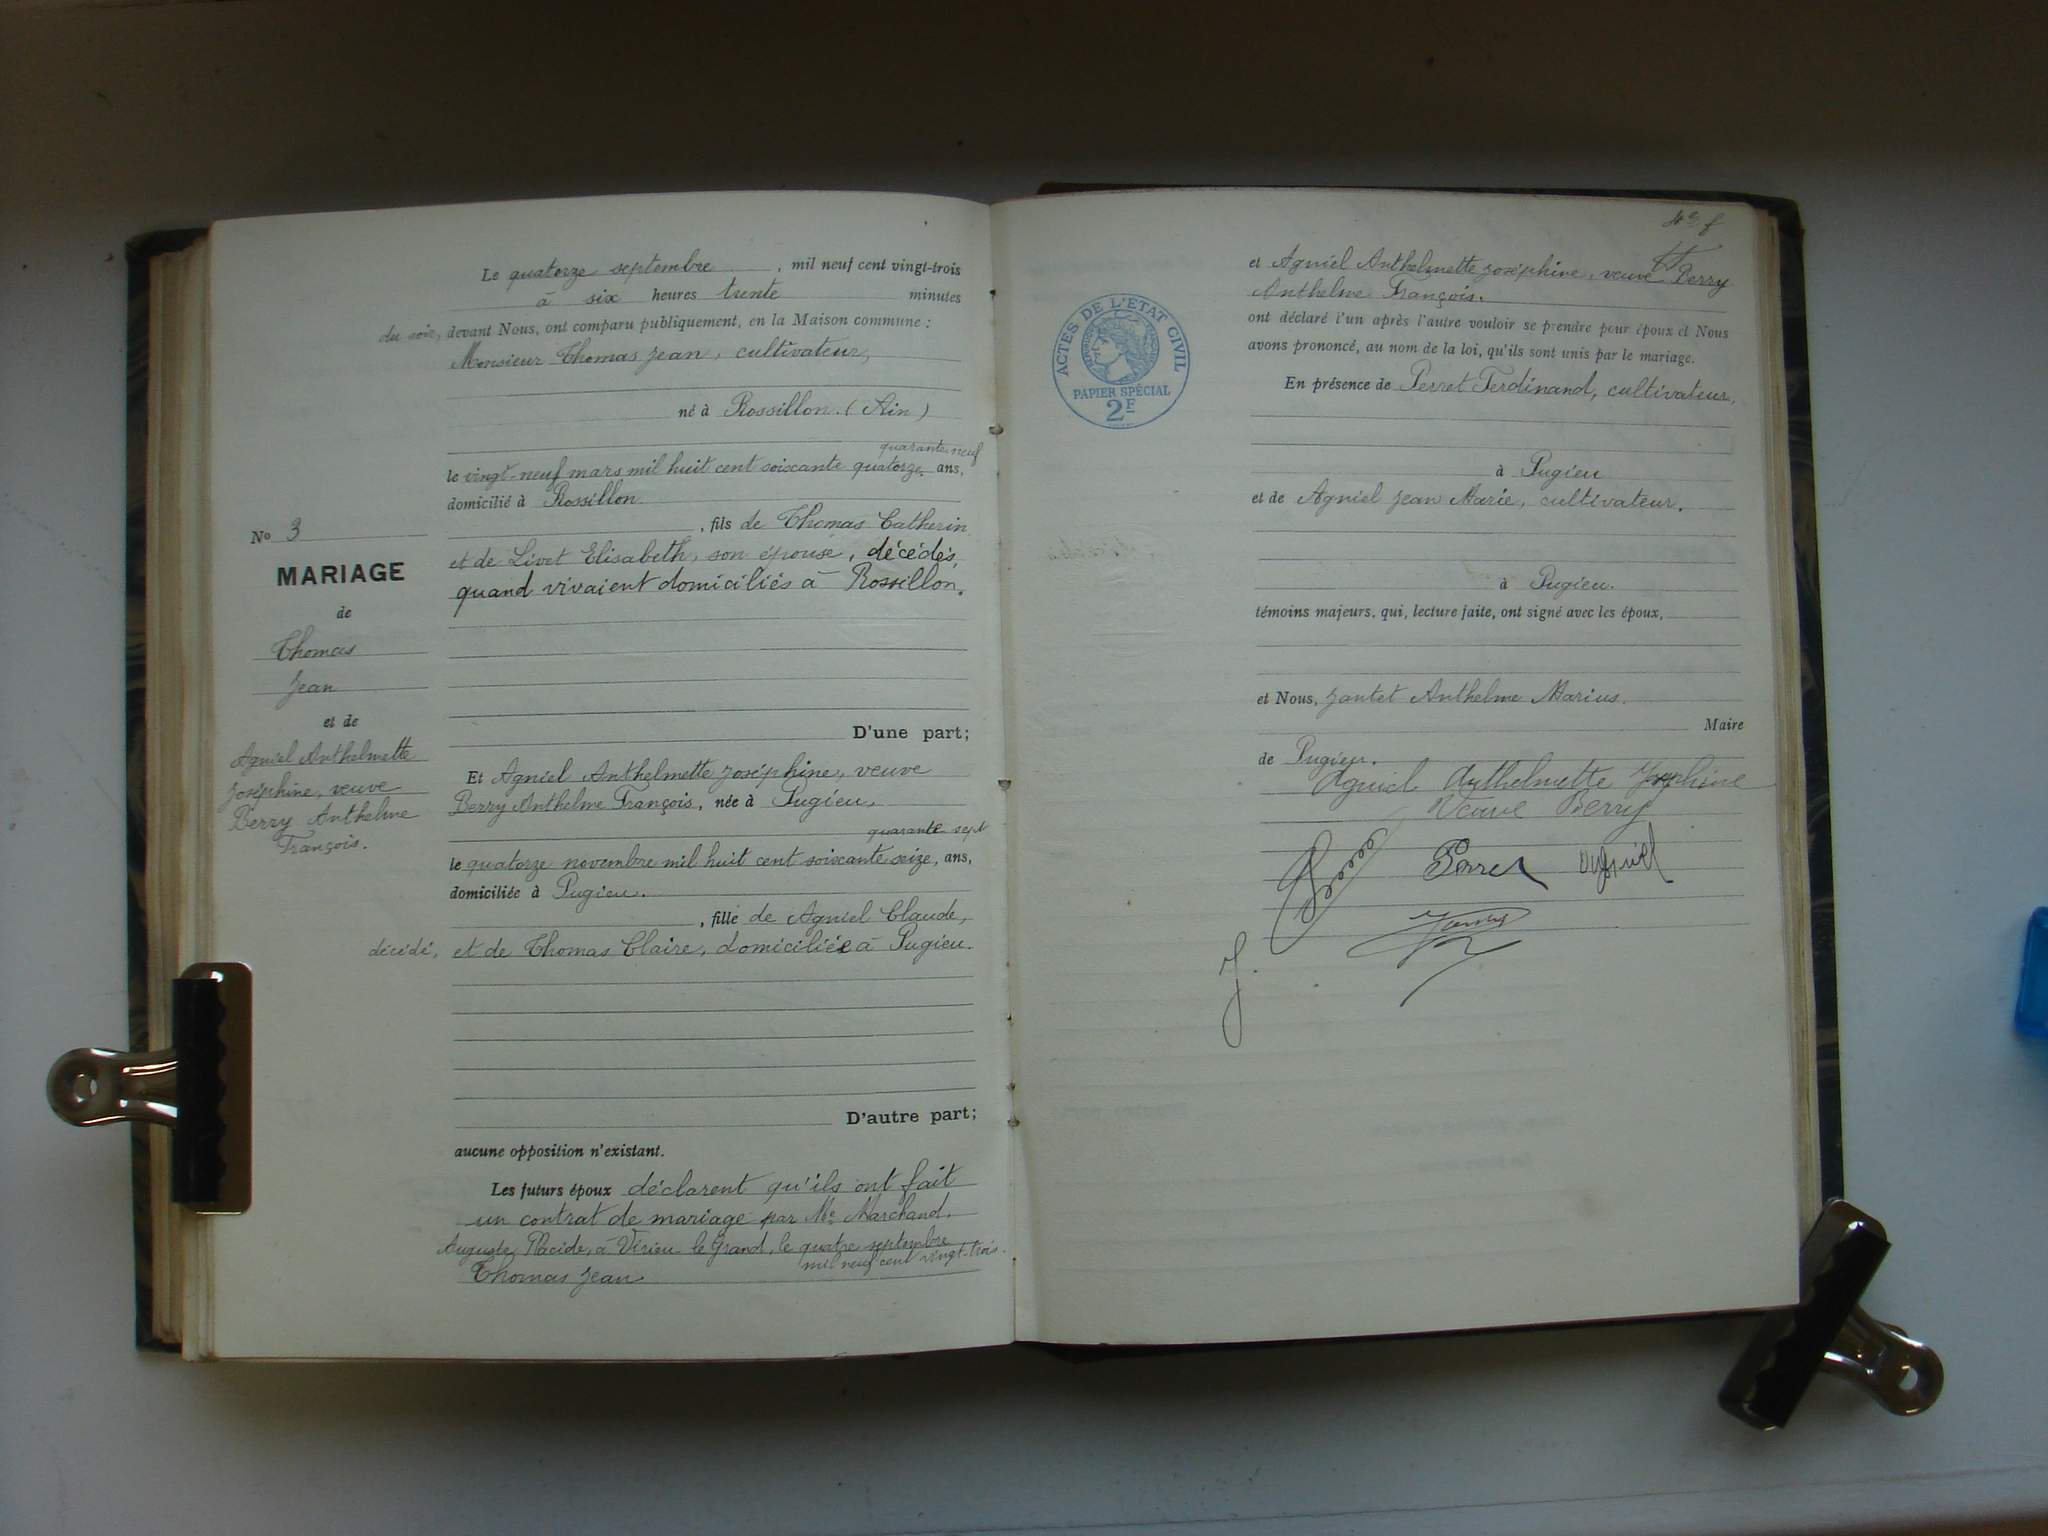 Le quatorze septembre, mil neuf cent vingt-trois
à six heures trente minutes
du soir, devant Nous, ont comparu publiquement, en la Maison commune :
Monsieur Thomas Jean, cultivateur,
né à Rossillon. (Ain)
quarante neuf
le vingt-neuf mars mil huit cent soixante quatorze, ans,
domicilié à Rossillon
, fils de Thomas Catherin
et de Livet Elisabeth, son épouse, décédés,
quand vivaient domiciliés à Rossillon.
D'une part;
Et Agniel Anthelmette Joséphine, veuve
Berry Anthelme François, née à Pugieu,
quarante sept
le quatorze novembre mil huit cent soixante seize, ans,
domiciliée à Pugieu.
, fille de Agniel Claude,
décédé, et de Thomas Claire, domiciliée à Pugieu.
D'autre part;
aucune opposition n'existant.
Les futurs époux déclarent qu'ils ont fait
un contrat de mariage par Me Marchand
Auguste, Placide, à Virieu le Grand, le quatre septembre
mil neuf cent vingt-trois.
Thomas Jean
No 3
MARIAGE
de
Thomas
Jean
et de
Agniel Anthelmette
Joséphine, veuve
Berry Anthelme
François.
ACTES DE L'ÉTAT CIVIL
PAPIER SPÉCIAL
2F
et Agniel Anthelmette Joséphine, veuve Berry
Anthelme François.
ont déclaré l'un après l'autre vouloir se prendre pour époux et Nous
avons prononcé, au nom de la loi, qu'ils sont unis par le mariage.
En présence de Perret Ferdinand, cultivateur,
à Pugieu
et de Agniel Jean Marie, cultivateur.
à Pugieu.
témoins majeurs, qui, lecture faite, ont signé avec les époux,
et Nous, Jantet Anthelme Marius.
Maire
de Pugieu.
Agniel Anthelmette Josephine
Veuve Berry
Perret Agniel
Jantet
J.